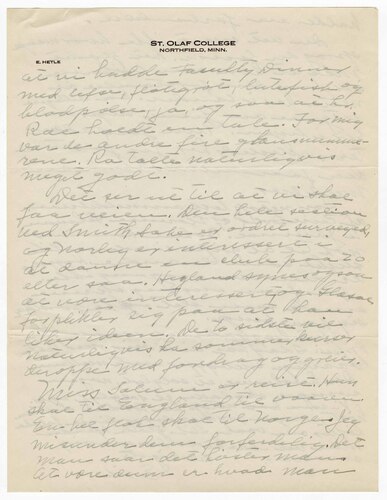 ST. OLAF COLLEGE
NORTHFIELD, MINN.
E. HETLE
at vi hadde Faculty Dinner
med lefse, fløtegrøt, lutefisk og
blodpølse, ja, og saa at Dr.
Ræe holdt en tale. For mig
var de andre fire glansnumme-
rene. Ra talte naturligvis
meget godt.
Det ser ut til at vi skal
faa veien. Den hele section
ved Smith Lake er ordret surveyed,
og Norley er interessert i
at danne en club paa 20
eller saa. Hegland synes ogsaa
at være interessert og
forplikter sig paa at han
liker ideen. De to sidste vil
naturligvis ha sommerkurser
droppe med foredrag og greier.
Miss er reist. Hun
skal til England til vaaren.
En hel flok skal til Norge. Jeg
misunder dem forferdelig. Det
man saar det høster man
at være dum er hvad man